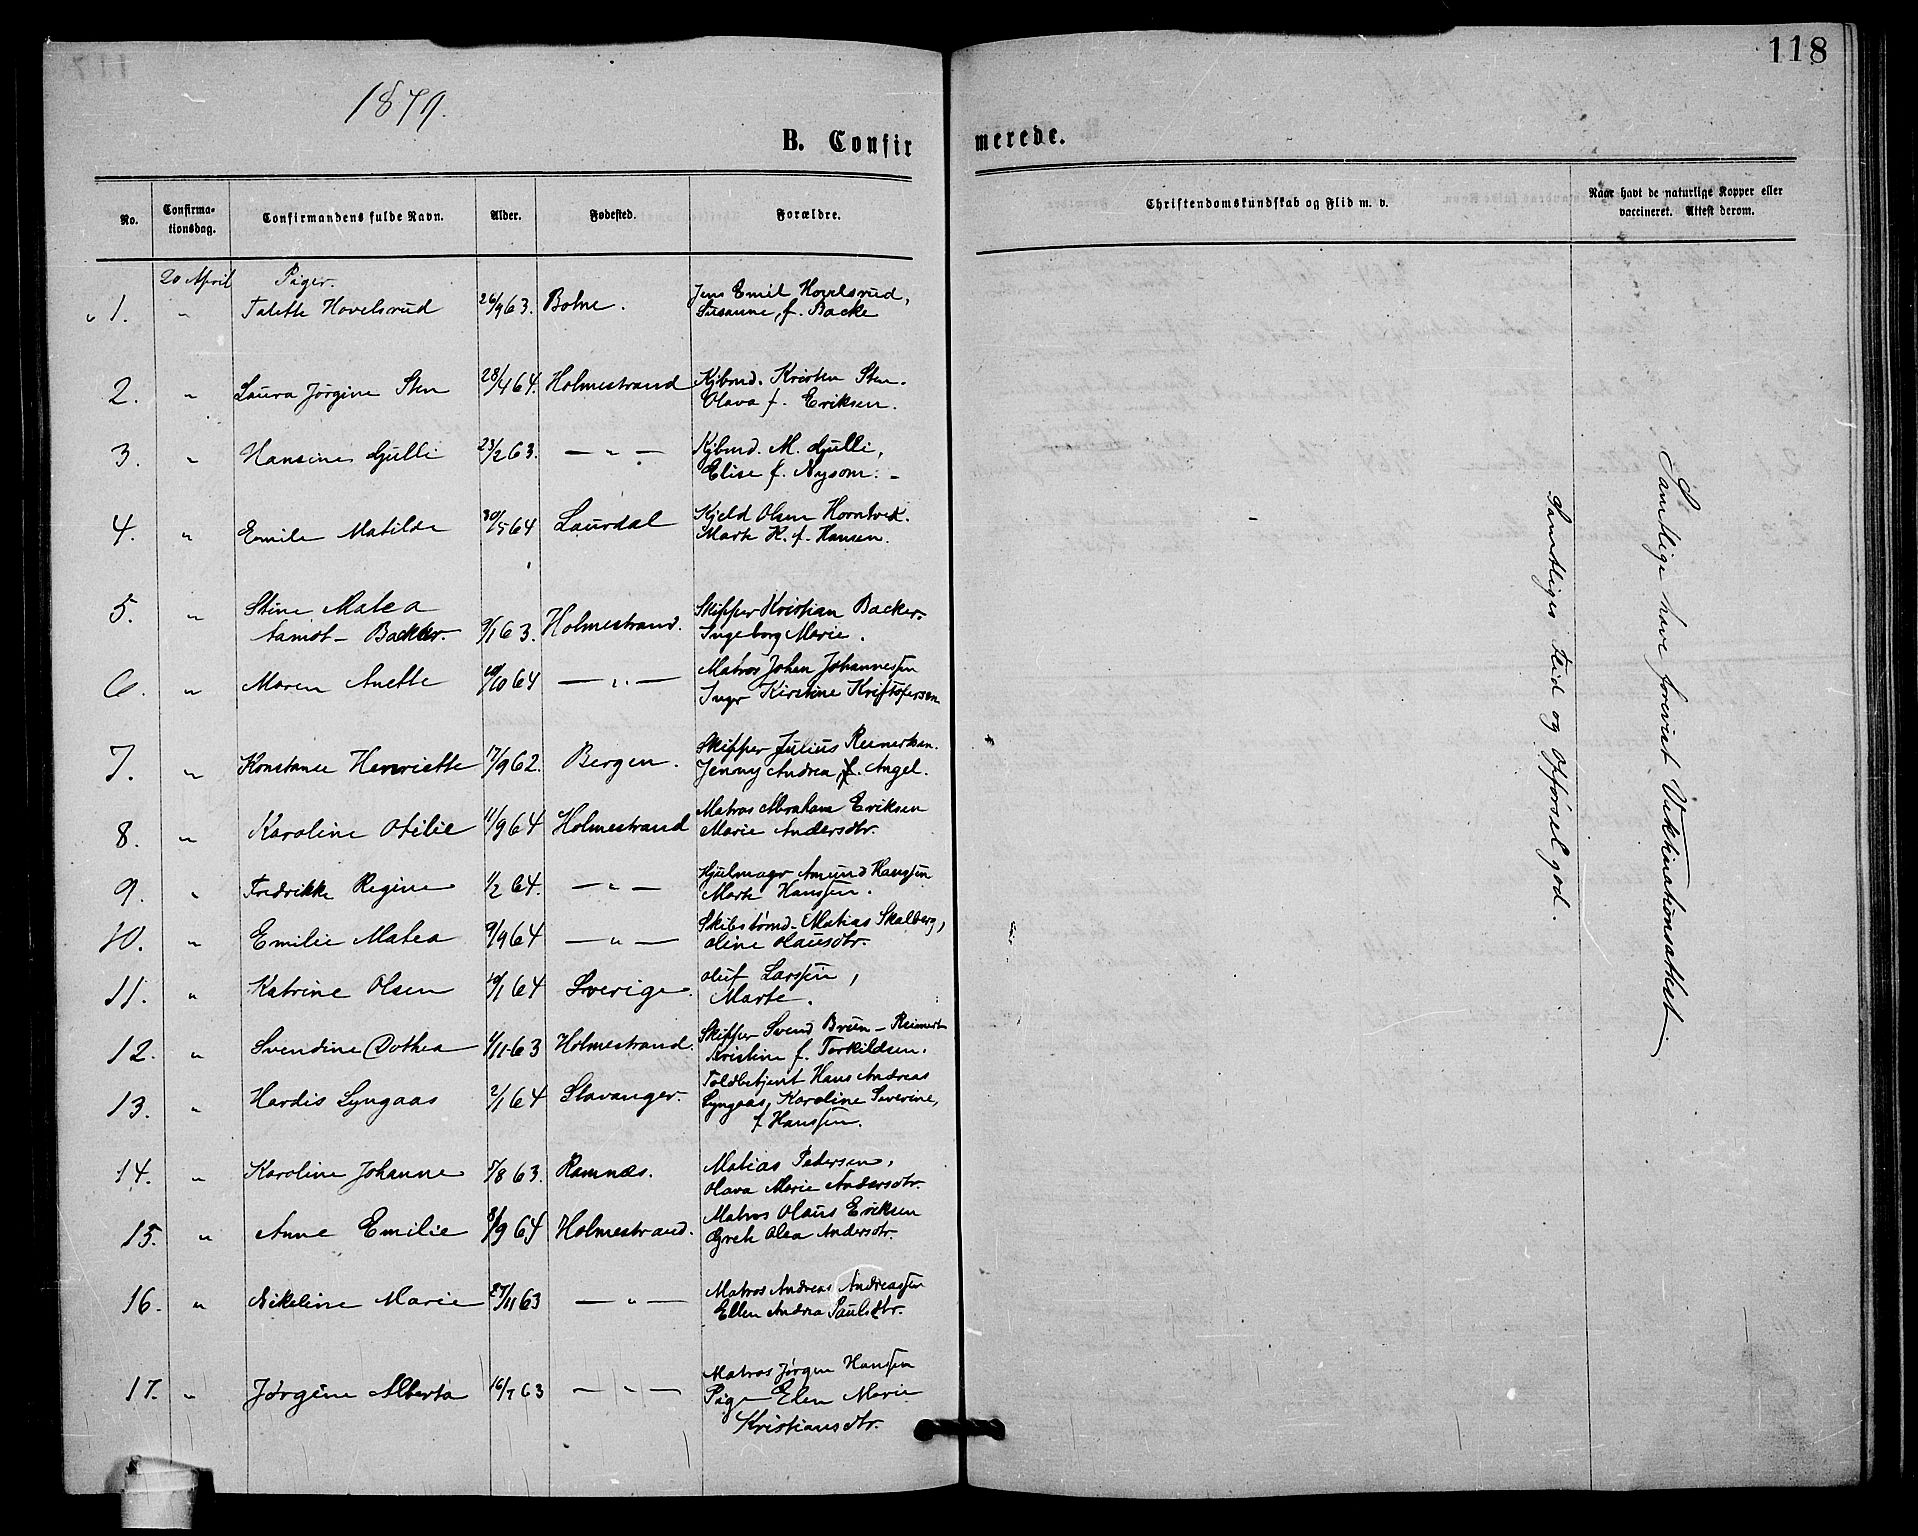 118
1879.
B. Confirmerede.
No. Confirmationsdag. Confirmandens fulde Navn. Alder. Fødested. Forældre. Christendomskundskab og Flid m. v. Naar havt de naturlige Kopper eller vaccineret. Attest derom.
20 April Piger.
1. " Talette Hovelsrud 26/9 63. Botne. Jens Emil Hovelsrud,
Susanne, f. Backe
2. " Laura Jørgine Sten 28/4 64. Holmestrand Kjbmd. Kristen Sten.
Olava f. Eriksen.
3. " Hansine Gulli 23/2 63. — " — Kjbmd. M. Gulli,
Elise f. Nysom. -
4. " Emile Matilde 30/5 64 Laurdal Kjeld Olsen Horntvet.
Marte K. f. Hansen.
5. " Stine Matea
Aamot- Backer. 9/1 63. Holmestrand. Skipper Kristian Backer.
Ingeborg Marie.
6. " Maren Anette 10/10 64 — " — Matros Johan Johannessen
Inger Kirstine Kristofersen
7. " Konstance Henriette 17/9 62. Bergen. Skipper Julius Reinertsen.
Jenny Andrea, f. Angel.
8. " Karoline Otilie 11/9 64 Holmestrand Matros Abraham Eriksen
Marie Andersdtr.
9. " Fredrikke Regine 1/2 64. — " — Hjulmager Amund Hanssen
Marte Hanssen.
10. " Emilie Matea 9/9 64 — " — Skibstømd. Matias Skalberg,
Oline Olausdtr.
11. " Katrine Olsen 19/1 64 Sverige. Oluf Larssen,
Marte.
12. " Svendine Dothea 1/11 63 Holmestrand. Skipper Svend Brun- Reinert
Kristine f. Torkildsen.
13. " Hardis Lyngaas 2/1 64 Stavanger. Toldbetjent Hans Andreas
Lyngaas, Karoline Severine,
f Hanssen.
14. " Karoline Johanne 5/8 63. Ramnæs. Matias Pedersen,
Olava Marie Andersdtr.
15. " Anne Emilie 8/9 64 Holmestrand. Matros Olaus Eriksen
Grete Olea Andersdtr.
16. " Nikeline Marie 27/11 63 — " — Matros Andreas Andreassen
Ellen Andrea Paulsdtr.
17. " Jørgine Alberta 16/7 63 — " — Matros Jørgen Hanssen
Pige Elen Marie
Kristiansdtr.
Samtliges Flid og Opførsel god.
Samtlige have forevist Vakcinationsattest